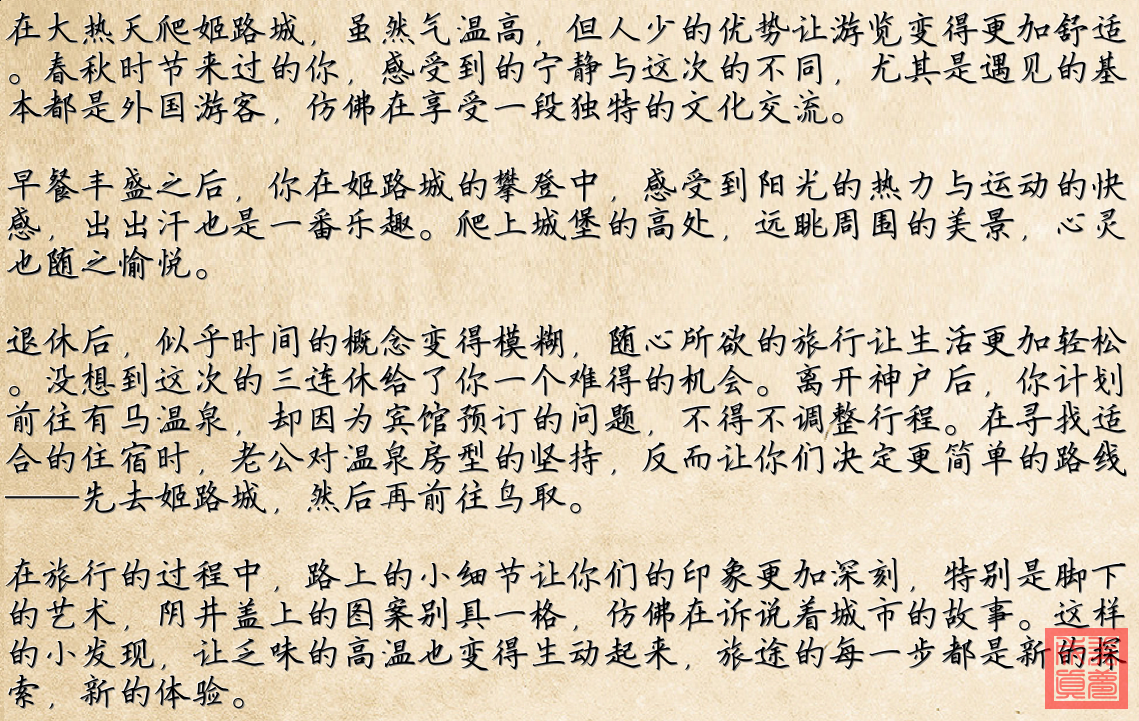 在大热天爬姬路城，虽然气温高，但人少的优势让游览变得更加舒适
。春秋时节来过的你，感受到的宁静与这次的不同，尤其是遇见的基
本都是外国游客，仿佛在享受一段独特的文化交流。
早餐丰盛之后，你在姬路城的攀登中，感受到阳光的热力与运动的快
感，出出汗也是一番乐趣。爬上城堡的高处，远眺周围的美景，心灵
也随之愉悦。
退休后，似乎时间的概念变得模糊，随心所欲的旅行让生活更加轻松
。没想到这次的三连休给了你一个难得的机会。离开神户后，你计划
前往有马温泉，却因为宾馆预订的问题，不得不调整行程。在寻找适
合的住宿时，老公对温泉房型的坚持，反而让你们决定更简单的路线
——先去姬路城，然后再前往鸟取。
在旅行的过程中，路上的小细节让你们的印象更加深刻，特别是脚下
的艺术，阴井盖上的图案别具一格，仿佛在诉说着城市的故事。这样
的小发现，让乏味的高温也变得生动起来，旅途的每一步都是新的探
索，新的体验。